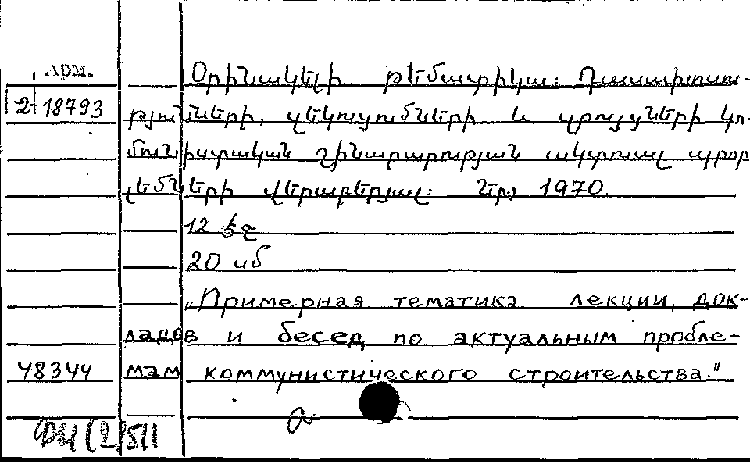 Арм.
Օրինակելի թեմատիկա: Դասախոսու-
2-18793 թյունների, զեկուցումների և զրույցների կո-
մունիստական շինարարության ակտուալ պրոբ
լեմների վերաբերյալ: Եր., 1970.
12 էջ
20 սմ
„Примерная тематика лекции, док-
ладов и бесед по актуальным пробле-
48344 мам коммунистического строительства."